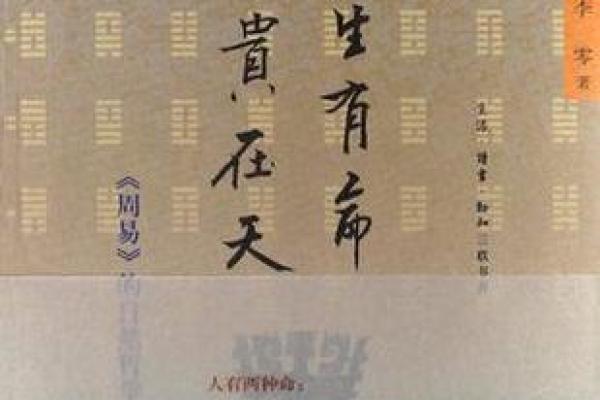 李零 著
生活·讀書·新知三联书店
生有命
貴在天
《周易》的自然哲
人有两种命：